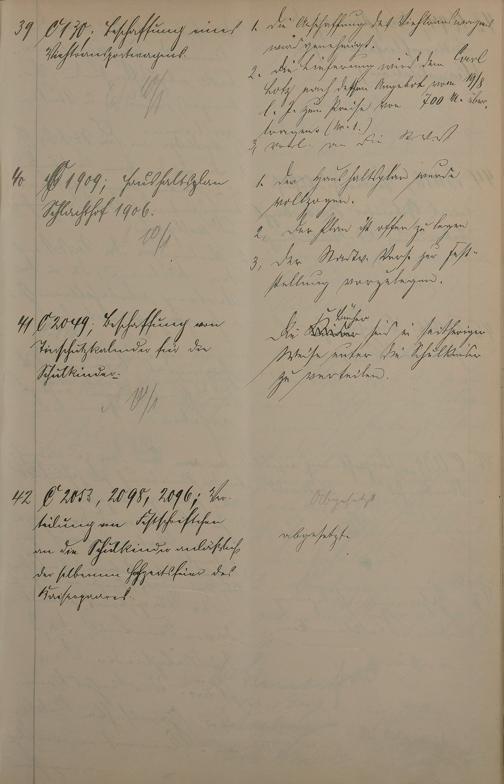 39 C 170; Beschaffung eines
Viehtransportwagens.
1. Die Beschaffung des Viehtransportwagens
wird genehmigt.
2. Die Lieferung wird dem Carl
Lotz nach dessen Angebot vom 19/8
l. J. zum Preise von 700 M. über-
tragen.
3,
40 C 1909; Haushaltsplan
Schlachthof 1906.
1. Der Haushaltsplan wurde
vollzogen.
2, Der Plan ist offen zu legen
3, Der Stadtv. Vers. zur Fest-
stellung vorzulegen.
41 C 2049; Beschaffung von
Tierschutzkalender für die
Schulkinder.
Die Bücher sind in seitheriger
Weise unter die Schulkinder
zu verteilen.
42 C 2053, 2098, 2096; Ver-
teilung von Festschriftchen
an die Schulkinder anläßlich
der silbernen Hochzeitsfeier des
Kaiserpaares.
Abgesetzt
abgesetzt.